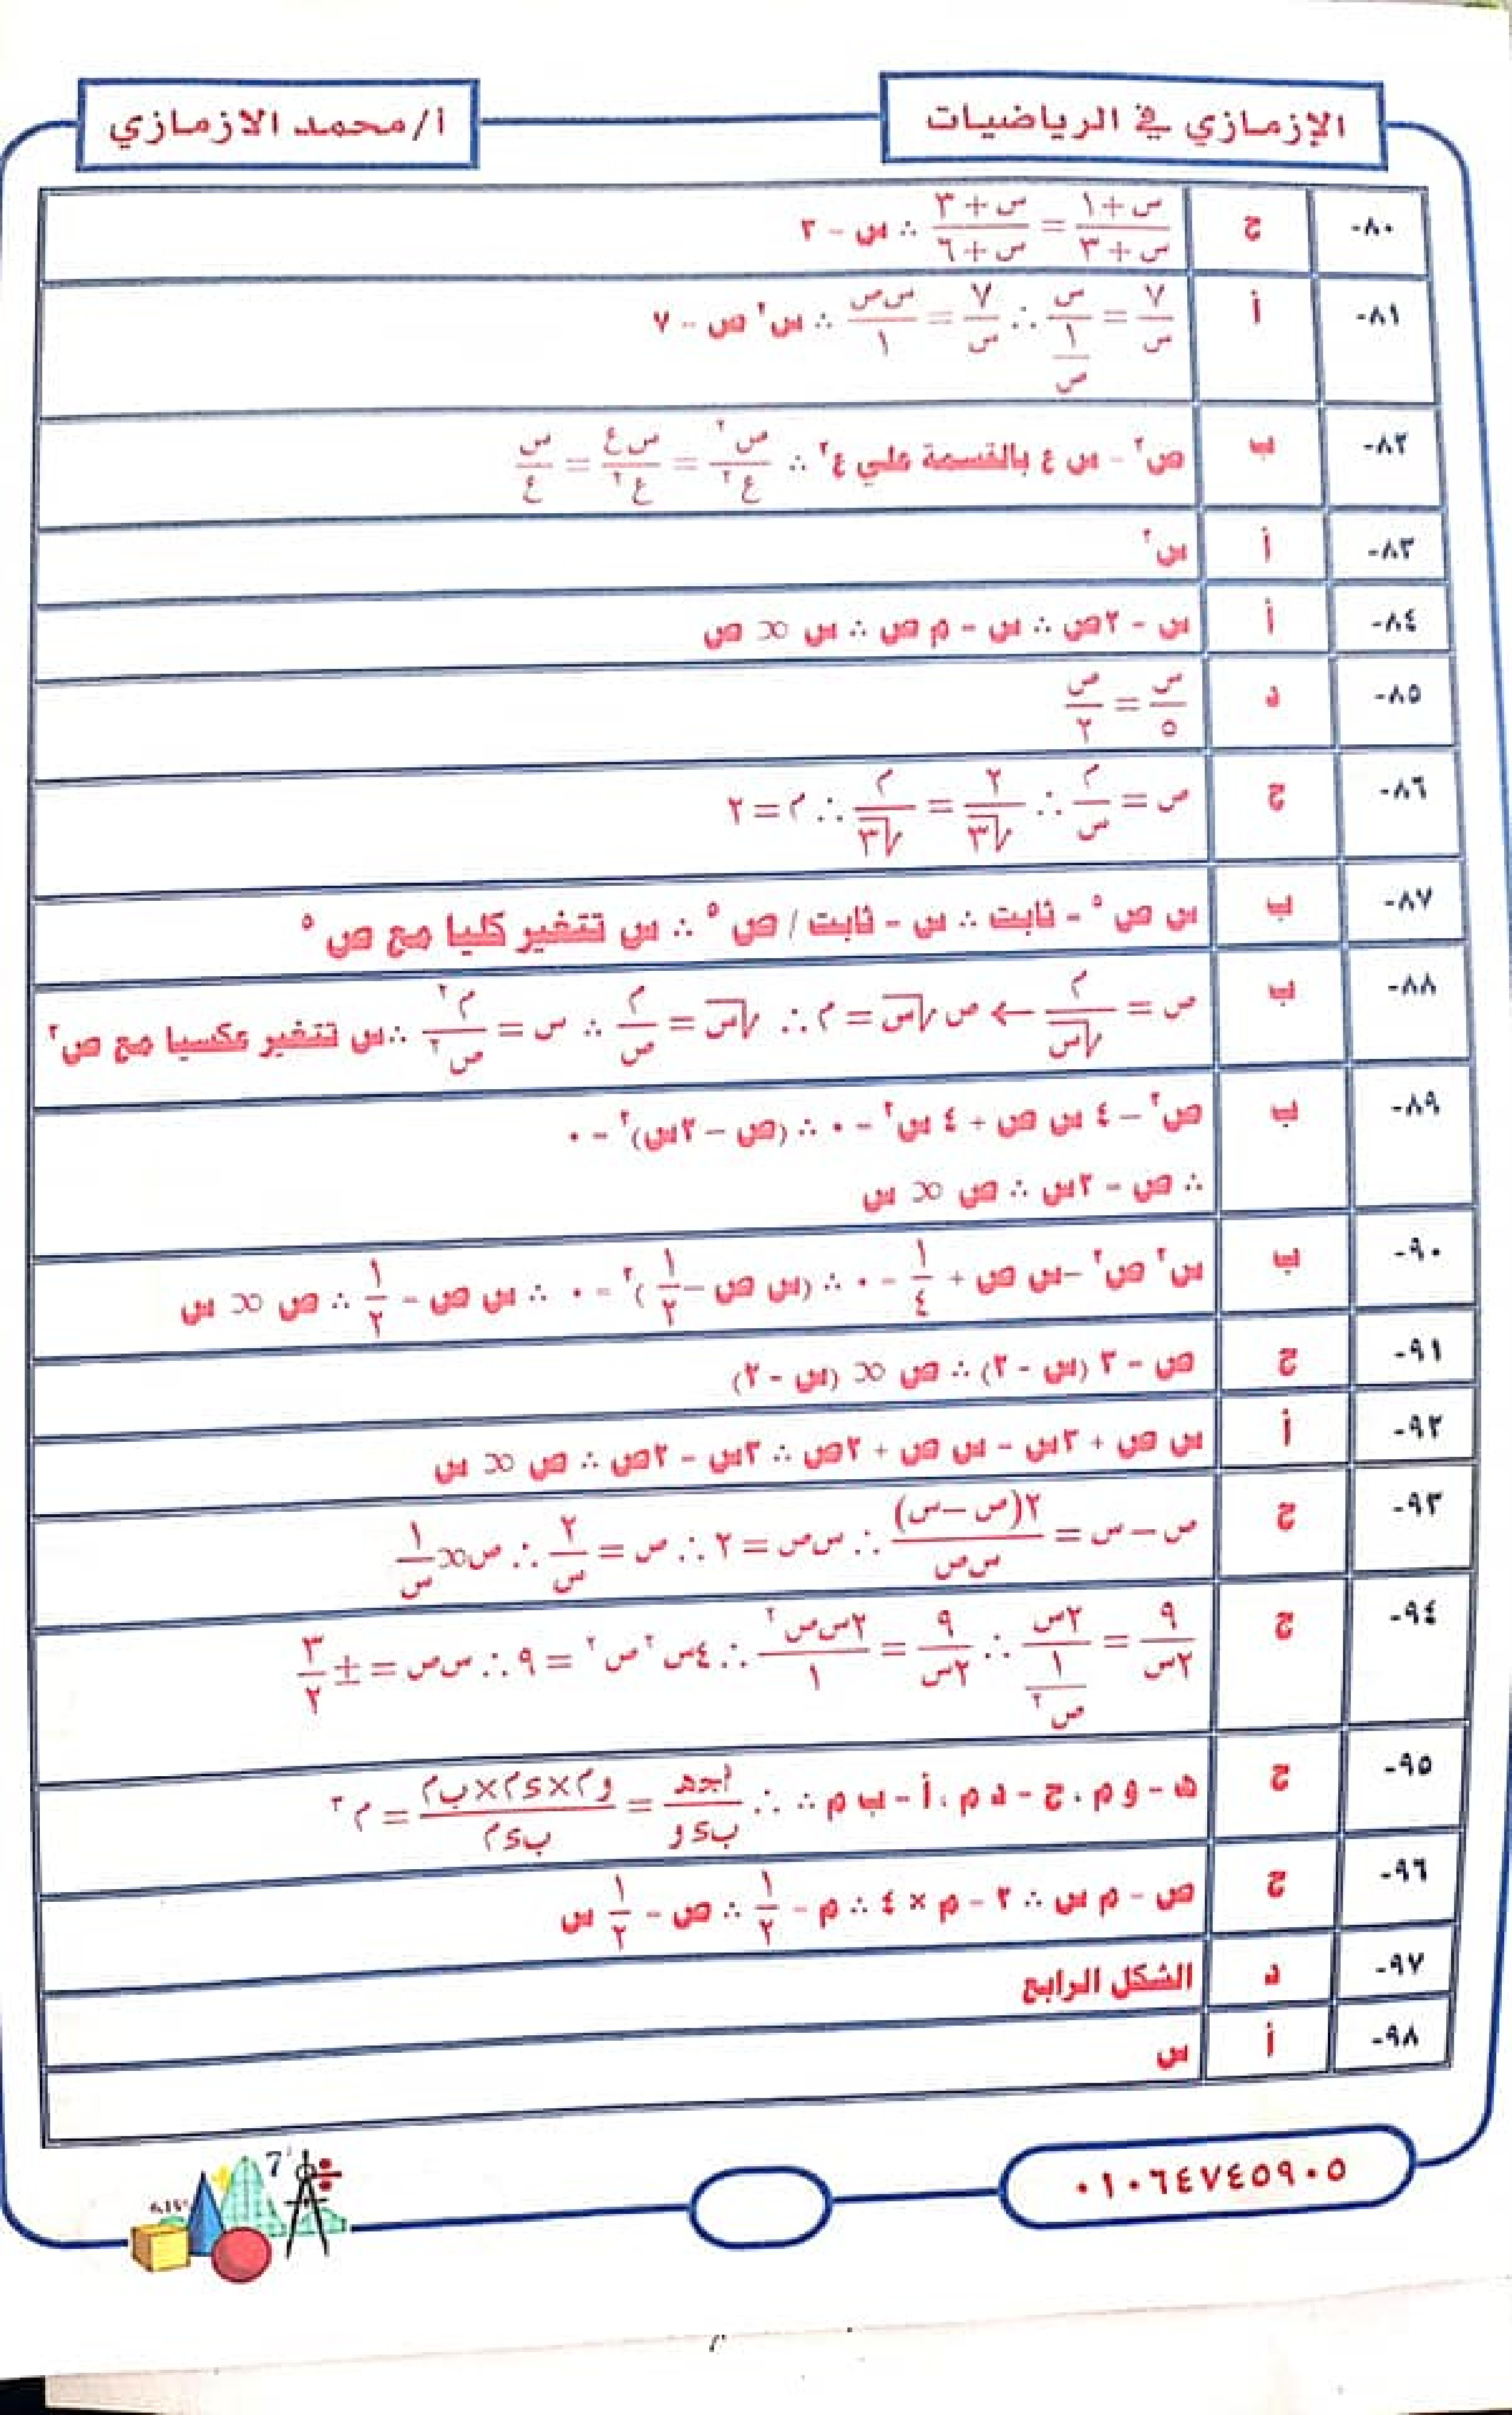 الإزمازي في الرياضيات
أ/محمد الازمازي
٨٠- ج (س+١)/(س+٣) = (س+٣)/(س+٦) ∴ س = ٣
٨١- أ ٧/س = س/(١/ص) ∴ ٧/س = س ص/١ ∴ س² ص = ٧
٨٢- ب ص² = س ع بالقسمة علي ع² ∴ ص²/ع² = س ع/ع² = س/ع
٨٣- أ س²
٨٤- أ س = ٢ص ∴ س = م ص ∴ س ∝ ص
٨٥- د س/٥ = ص/٢
٨٦- ج ص = م/س ∴ ٢/√٣ = م/√٣ ∴ م = ٢
٨٧- ب س ص⁵ = ثابت ∴ س = ثابت / ص⁵ ∴ س تتغير كليا مع ص⁵
٨٨- ب ص = م/√س ← ص √س = م ∴ √س = م/ص ∴ س = م²/ص² ∴ س تتغير عكسيا مع ص²
٨٩- ب ص² – ٤ س ص + ٤ س² = ٠ ∴ (ص – ٢س)² = ٠
∴ ص = ٢س ∴ ص ∝ س
٩٠- ب س² ص² – س ص + ١/٤ = ٠ ∴ (س ص – ١/٢)² = ٠ ∴ س ص = ١/٢ ∴ ص ∝ س
٩١- ج ص = ٣ (س - ٢) ∴ ص ∝ (س - ٢)
٩٢- أ س ص + ٣س = س ص + ٢ص ∴ ٣س = ٢ص ∴ ص ∝ س
٩٣- ج ص – س = ٢(ص – س)/س ص ∴ س ص = ٢ ∴ ص = ٢/س ∴ ص ∝ ١/س
٩٤- ج ٩/٢س = ٢س/(١/ص²) ∴ ٩/٢س = ٢س ص²/١ ∴ ٤س² ص² = ٩ ∴ س ص = ± ٣/٢
٩٥- ج ه = و م ، ج = د م ، أ = ب م ∴ ∴ أ ج ه/ب د و = و م × د م × ب م/ب د م = م³
٩٦- ج ص = م س ∴ ٢ = م × ٤ ∴ م = ١/٢ ∴ ص = ١/٢ س
٩٧- د الشكل الرابع
٩٨- أ س
٠١٠٦٤٧٤٥٩٠٥